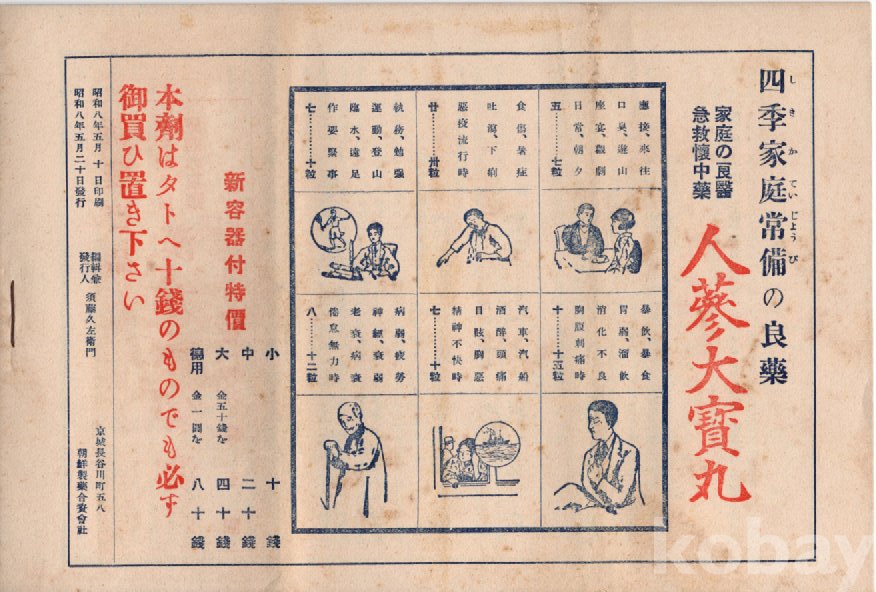 四季家庭常備の良藥
しきかていじようび
家庭の良醫
急救懷中藥
人蔘大寶丸
應接、來往
口臭、遊山
座宴、觀劇
日常、朝夕
五………七粒
食傷、暑症
吐瀉、下痢
惡疫流行時
廿………卅粒
執務、勉强
運動、登山
臨水、遠足
作要緊事
七………十粒
暴飮、暴食
胃弱、溜飮
消化不良
胸腹刺痛時
十………十五粒
汽車、汽船
酒醉、頭痛
目眩、胸惡
精神不快時
七………十粒
病弱、疲勞
神經、衰弱
老衰、病衰
倦怠無力時
八………十二粒
新容器付特價
小 十錢
中 二十錢
大 金五十錢を 四十錢
德用 金一圓を 八十錢
本劑はタトヘ十錢のものでも必ず
御買ひ置き下さい
昭和八年五月十日印刷
昭和八年五月二十日發行
編輯兼
發行人 須藤久左衛門
京城長谷川町五八
朝鮮製藥合資會社
kobay